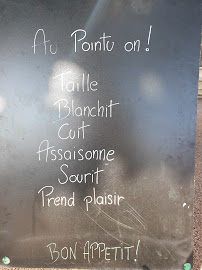 Au Pointu on !
Taille
Blanchit
Cuit
Assaisonne
Sourit
Prend plaisir
BON APPETIT !